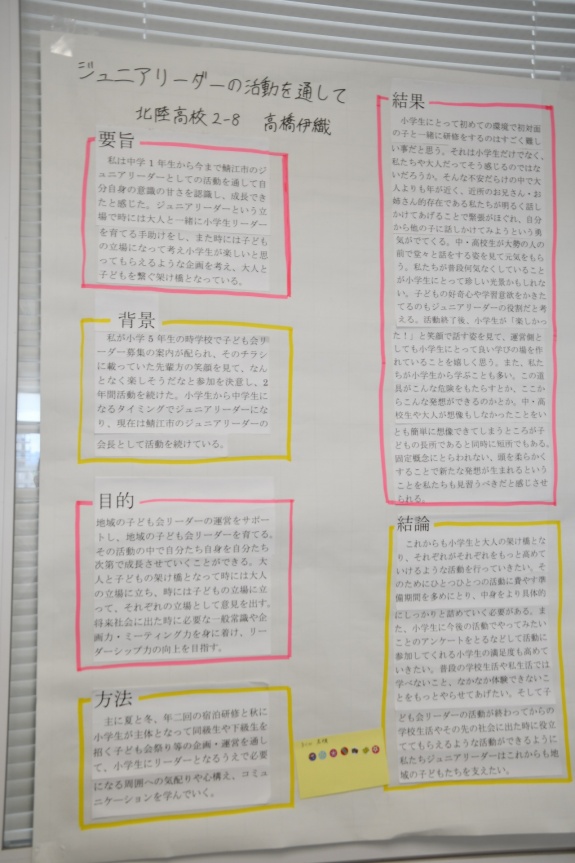 ジュニアリーダーの活動を通して
北陸高校2-8 高橋伊織
要旨
私は中学1年生から今まで鯖江市のジ
ュニアリーダーとしての活動を通して自
分自身の意識の甘さを認識し、成長でき
たと感じた。ジュニアリーダーという立
場で時には大人と一緒に小学生リーダー
を育てる手助けをし、また時には子ども
の立場になって考え小学生が楽しいと思
ってもらえるような企画を考え、大人と
子どもを繋ぐ架け橋となっている。
背景
私が小学5年生の時学校で子ども会リ
ーダー募集の案内が配られ、そのチラシ
に載っていた先輩方の笑顔を見て、なん
となく楽しそうだなと参加を決意し、2
年間活動を続けた。小学生から中学生に
なるタイミングでジュニアリーダーにな
り、現在は鯖江市のジュニアリーダーの
会長として活動を続けている。
目的
地域の子ども会リーダーの運営をサポー
トし、地域の子ども会リーダーを育てる。
その活動の中で自分たち自身を自分たち
次第で成長させていくことができる。大
人と子どもの架け橋となって時には大人
の立場に立ち、時には子どもの立場に立
って、それぞれの立場として意見を出す。
将来社会に出た時に必要な一般常識や企
画力・ミーティング力を身に着け、リー
ダーシップ力の向上を目指す。
方法
主に夏と冬、年二回の宿泊研修と秋に
小学生が主体となって同級生や下級生を
招く子ども会祭り等の企画・運営を通し
て、小学生にリーダーとなるうえで必要
になる周囲への気配りや心構え、コミュ
ニケーションを学んでいく。
結果
小学生にとって初めての環境で初対面
の子と一緒に研修をするのはすごく難し
い事だと思う。それは小学生だけでなく、
私たちや大人だってそう感じるのではな
いだろうか。そんな不安だらけの中で大
人よりも年が近く、近所のお兄さん・お
姉さん的存在である私たちが明るく話し
かけてあげることで緊張がほぐれ、自分
から他の子に話しかけてみようという勇
気がでてくる。中・高校生が大勢の人の
前で堂々と話をする姿を見て元気をもら
う。私たちが普段何気なくしていること
が小学生にとって珍しい光景かもしれな
い。子どもの好奇心や学習意欲をかきた
てるのもジュニアリーダーの役割だと考
える。活動終了後、小学生が「楽しかっ
た!」と笑顔で話す姿を見て、運営側と
しても小学生にとって良い学びの場を作
れていることを嬉しく思う。また、私た
ちが小学生から学ぶことも多い。この道
具がこんな危険をもたらすとか、ここか
らこんな発想ができるのかとか、中・高
校生や大人が想像もしなかったことをい
とも簡単に想像できてしまうところが子
どもの長所であると同時に短所でもある。
固定概念にとらわれない、頭を柔らかく
することで新たな発想が生まれるという
ことを私たちも見習うべきだと感じさせ
られる。
結論
これからも小学生と大人の架け橋とな
り、それぞれがそれぞれをもっと高めて
いけるような活動を行っていきたい。そ
のためにひとつひとつの活動に費やす準
備期間を多めにとり、中身をより具体的
にしっかりと詰めていく必要がある。ま
た、小学生に今後の活動でやってみたい
ことのアンケートをとるなどして活動に
参加してくれる小学生の満足度も高めて
いきたい。普段の学校生活や私生活では
学べないこと、なかなか体験できないこ
とをもっとやらせてあげたい。そして子
ども会リーダーの活動が終わってからの
学校生活やその先の社会に出た時に役立
ててもらえるような活動ができるように
私たちジュニアリーダーはこれからも地
域の子どもたちを支えたい。